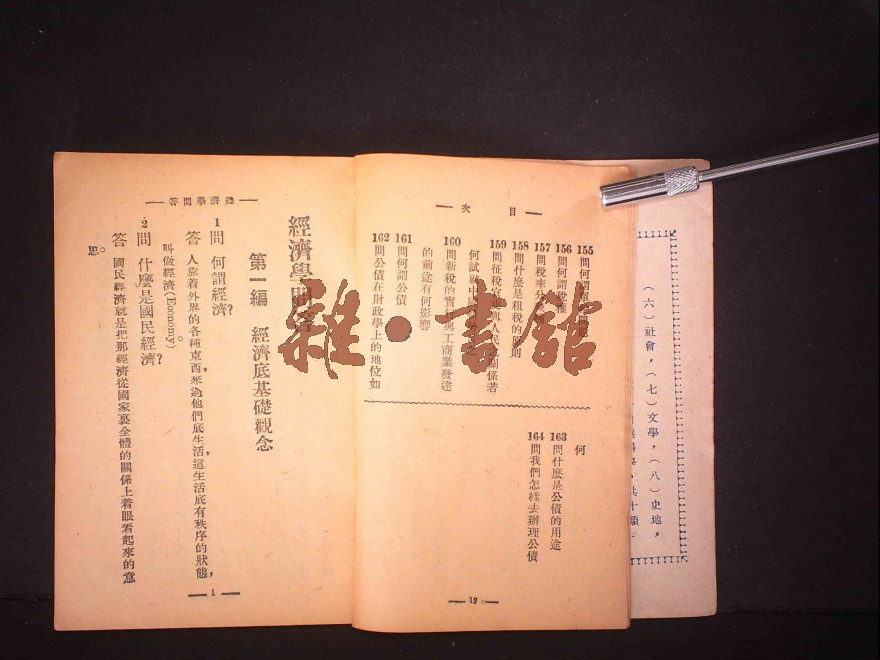 目　次
155 問何謂
156 問何謂稅權
157 問稅率分
158 問什麼是租稅的原則
159 問征稅官吏與人民之關係若
何試就中國
160 問新稅的實 與工商業發達
的前途有何影響
161 問何謂公債
162 問公債在財政學上的地位如
何
163 問什麼是公債的用途
164 問我們怎樣去辦理公債
12
經濟學問答
經濟學問答
第一編　經濟底基礎觀念
1 問　何謂經濟?
答　人靠着外界的各種東西，來過他們底生活，這生活底有秩序的狀態，
叫做經濟(Economy)。
2 問　什麼是國民經濟?
答　國民經濟就是把那經濟從國家裏全體的關係上着眼看起來的意
思。
1
（六）社會，（七）文學，（八）史地，
共十類。
雜·書館